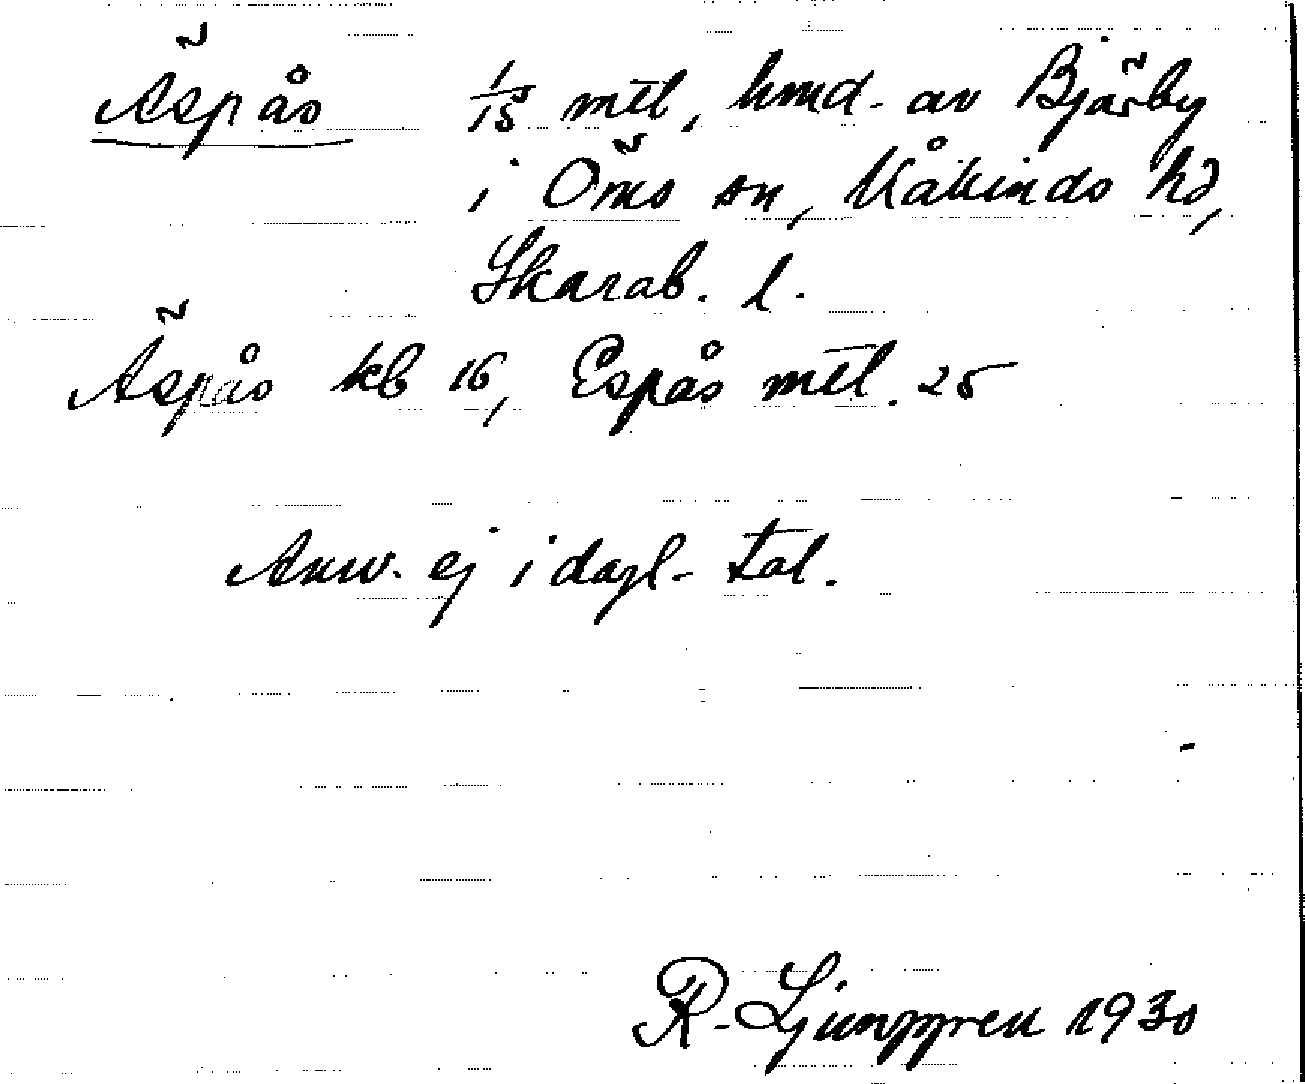 Äspås 1/15 mtl, hmd. av Bjärby
i Öms sn, Kåkinds hd,
Skarab. l.
Äspås kb 16, Espås mtl. 25
Anv. ej i dagl. tal.
R. Ljunggren 1930